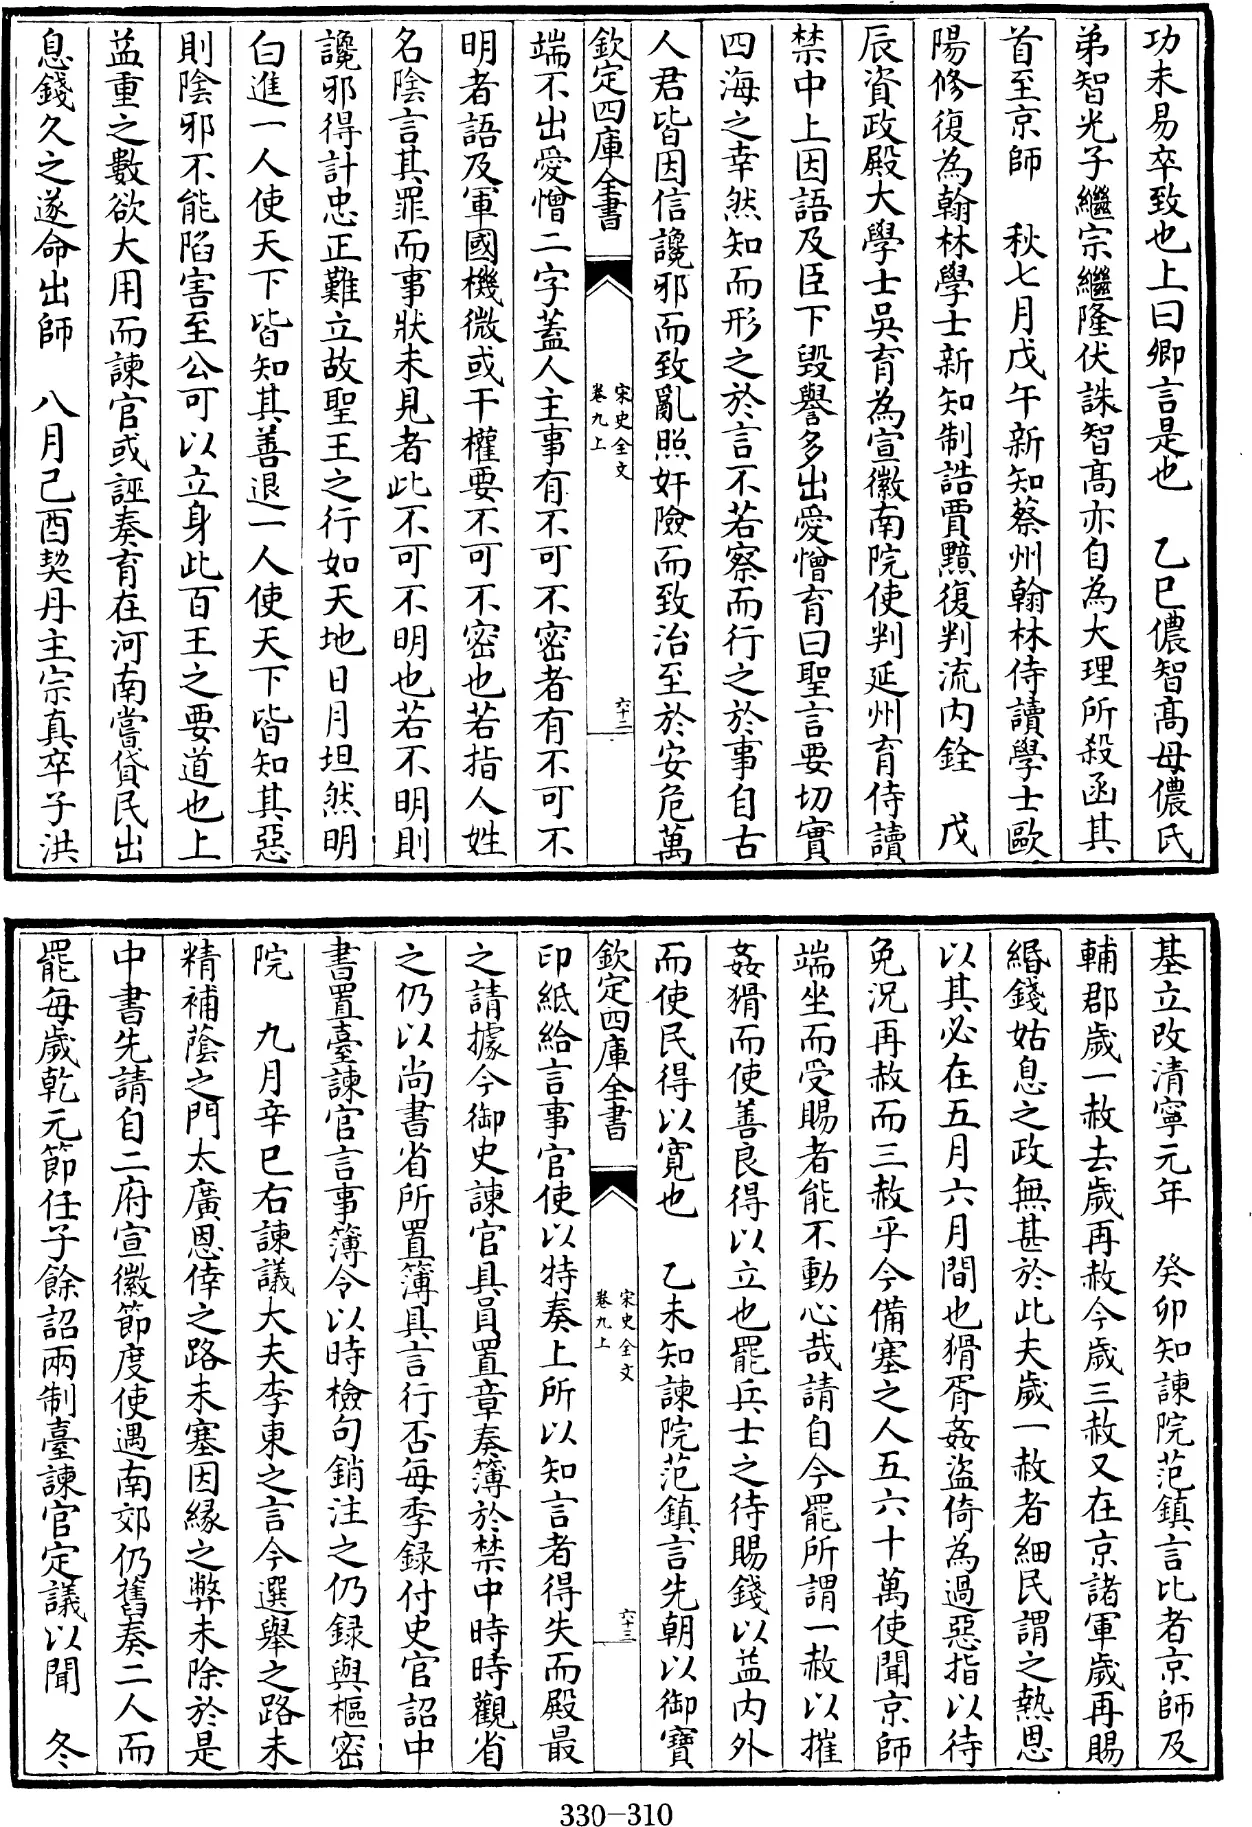 功未易卒致也上曰卿言是也　乙巳儂智高母儂氏
弟智光子繼宗繼隆伏誅智高亦自為大理所殺函其
首至京師　秋七月戊午新知蔡州翰林侍讀學士歐
陽修復為翰林學士新知制誥賈黯復判流內銓　戊
辰資政殿大學士吳育為宣徽南院使判延州育侍讀
禁中上因語及臣下毀譽多出愛憎育曰聖言要切實
四海之幸然知而形之於言不若察而行之於事自古
人君皆因信讒邪而致亂照奸險而致治至於安危萬
欽定四庫全書
宋史全文
卷九上
六十二
端不出愛憎二字蓋人主事有不可不密者有不可不
明者語及軍國機微或干權要不可不密也若指人姓
名陰言其罪而事狀未見者此不可不明也若不明則
讒邪得計忠正難立故聖王之行如天地日月坦然明
白進一人使天下皆知其善退一人使天下皆知其惡
則陰邪不能陷害至公可以立身此百王之要道也上
益重之數欲大用而諫官或誣奏育在河南嘗貸民出
息錢久之遂命出師　八月己酉契丹主宗真卒子洪
基立改清寧元年　癸卯知諫院范鎮言比者京師及
輔郡歲一赦去歲再赦今歲三赦又在京諸軍歲再賜
緡錢姑息之政無甚於此夫歲一赦者細民謂之熱恩
以其必在五月六月間也猾胥姦盜倚為過惡指以待
免況再赦而三赦乎今備塞之人五六十萬使聞京師
端坐而受賜者能不動心哉請自今罷所謂一赦以摧
姦猾而使善良得以立也罷兵士之待賜錢以益內外
而使民得以寬也　乙未知諫院范鎮言先朝以御寶
欽定四庫全書
宋史全文
卷九上
六十三
印紙給言事官使以特奏上所以知言者得失而殿最
之請據今御史諫官具員置章奏簿於禁中時時觀省
之仍以尚書省所置簿具言行否每季錄付史官詔中
書置臺諫官言事簿令以時檢句銷注之仍錄與樞密
院　九月辛巳右諫議大夫李東之言今選舉之路未
精補蔭之門太廣恩倖之路未塞因緣之弊未除於是
中書先請自二府宣徽節度使遇南郊仍舊奏二人而
罷每歲乾元節任子餘詔兩制臺諫官定議以聞　冬
330-310